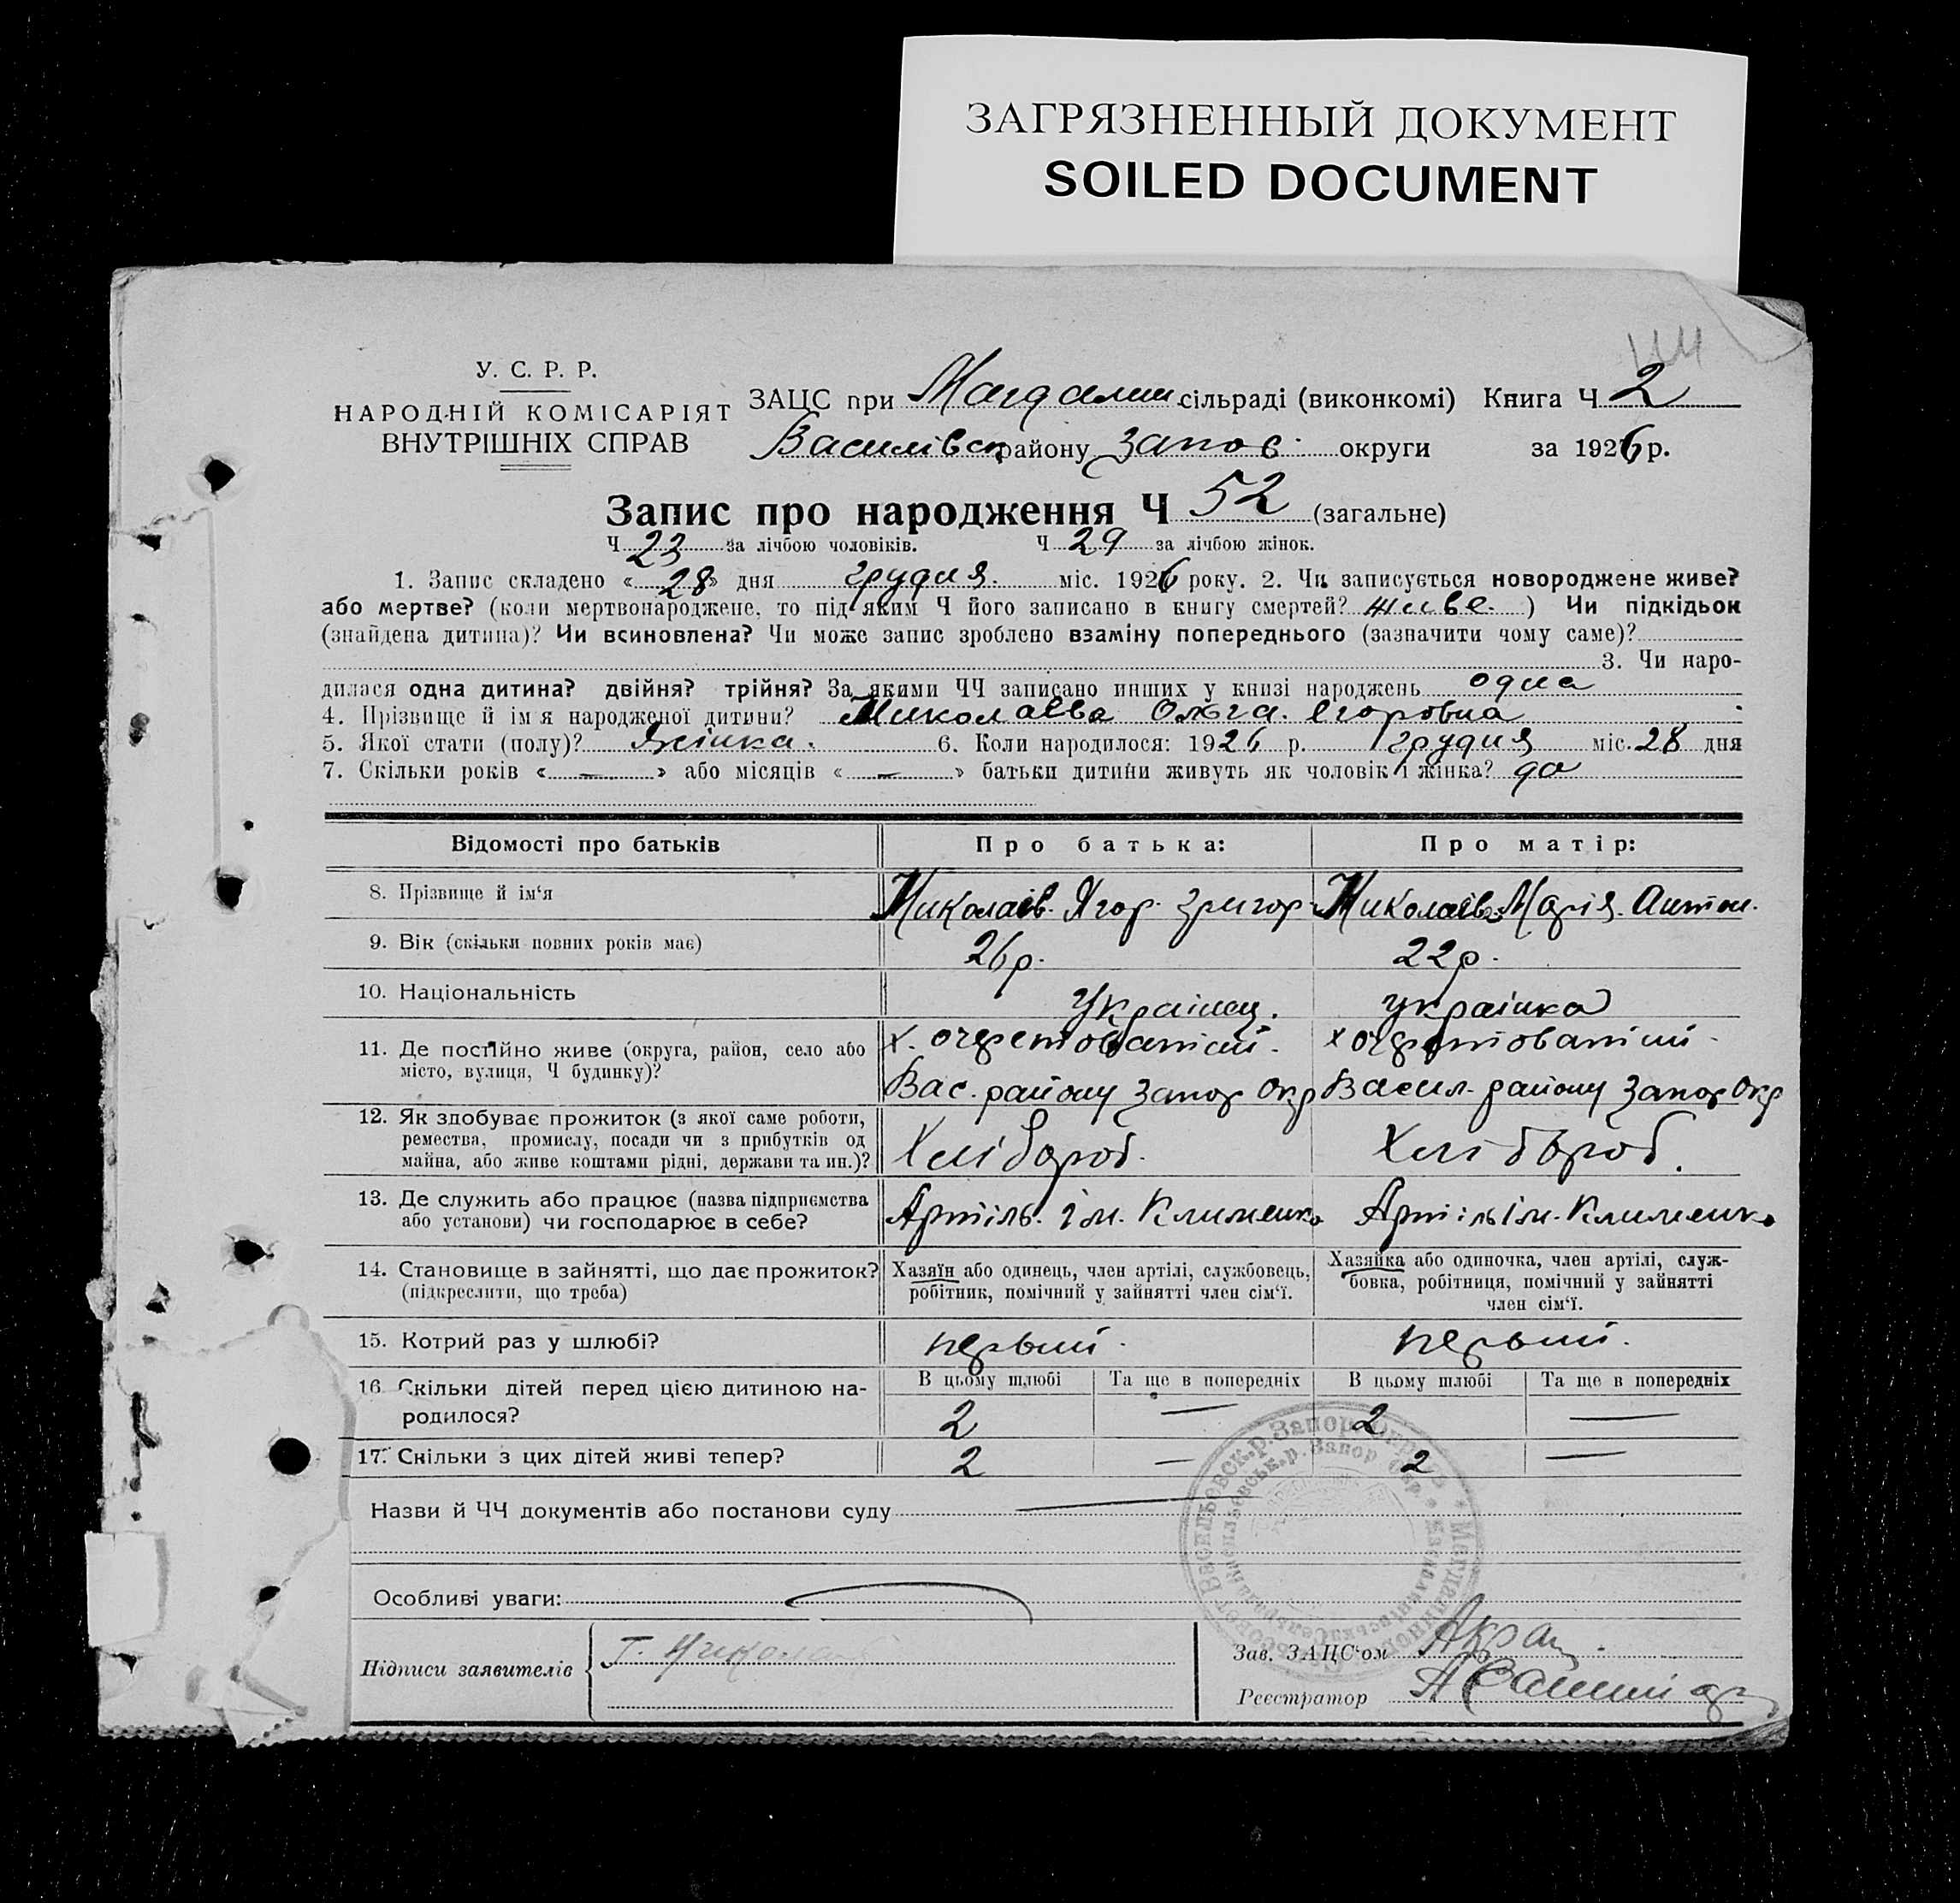 ЗАГРЯЗНЕННЫЙ ДОКУМЕНТ
SOILED DOCUMENT
У. С. Р. Р.
НАРОДНІЙ КОМІСАРІЯТ
ВНУТРІШНІХ СПРАВ
ЗАЦС при Магдалин. сільраді (виконкомі) Книга Ч 2
Василівск району Запор. округи за 1926 р.
Запис про народження Ч 52 (загальне)
Ч 23 за лічбою чоловіків. Ч 29 за лічбою жінок.
1. Запис складено « 28 » дня грудня. міс. 1926 року. 2. Чи записується новороджене живе?
або мертве? (коли мертвонароджене, то під яким Ч його записано в книгу смертей? живе. ) Чи підкідьок
(знайдена дитина)? Чи всиновлена? Чи може запис зроблено взаміну попереднього (зазначити чому саме)?
3. Чи наро-
дилася одна дитина? двійня? трійня? За якими ЧЧ записано инших у книзі народжень одна
4. Прізвище й ім'я народженої дитини? Миколаєва Ольга. Єгоровна
5. Якої стати (полу)? Жінка. 6. Коли народилося: 1926 р. грудня міс. 28 дня
7. Скільки років « — » або місяців « — » батьки дитини живуть як чоловік і жінка? да
Відомості про батьків Про батька: Про матір:
8. Прізвище й ім'я Миколаєв. Ягор. Григор. Миколаєва Марія. Антон.
9. Вік (скільки повних років має) 26 р. 22 р.
10. Національність Українец. українка
11. Де постійно живе (округа, район, село або
місто, вулиця, Ч будинку)?
Вас. району Запор Окр Васил. району Запор Окр
12. Як здобуває прожиток (з якої саме роботи,
ремества, промислу, посади чи з прибутків од
майна, або живе коштами рідні, держави та ин.)?
Хлібороб. Хлібороб.
13. Де служить або працює (назва підприємства
або установи) чи господарює в себе?
Артіль. ім. Клименко Артіль ім. Клименко
14. Становище в зайнятті, що дає прожиток?
(підкреслити, що треба)
Хазяїн або одинець, член артілі, службовець,
робітник, помічний у зайнятті член сім'ї.
Хазяйка або одиночка, член артілі, служ-
бовка, робітниця, помічний у зайнятті
член сім'ї.
15. Котрий раз у шлюбі? первий. первий.
16. Скільки дітей перед цією дитиною на-
родилося?
В цьому шлюбі Та ще в попередніх В цьому шлюбі Та ще в попередніх
2 — 2 —
17. Скільки з цих дітей живі тепер? 2 — 2 —
Назви й ЧЧ документів або постанови суду
Особливі уваги:
Підписи заявителів
Зав. ЗАЦС'ом
Реєстратор